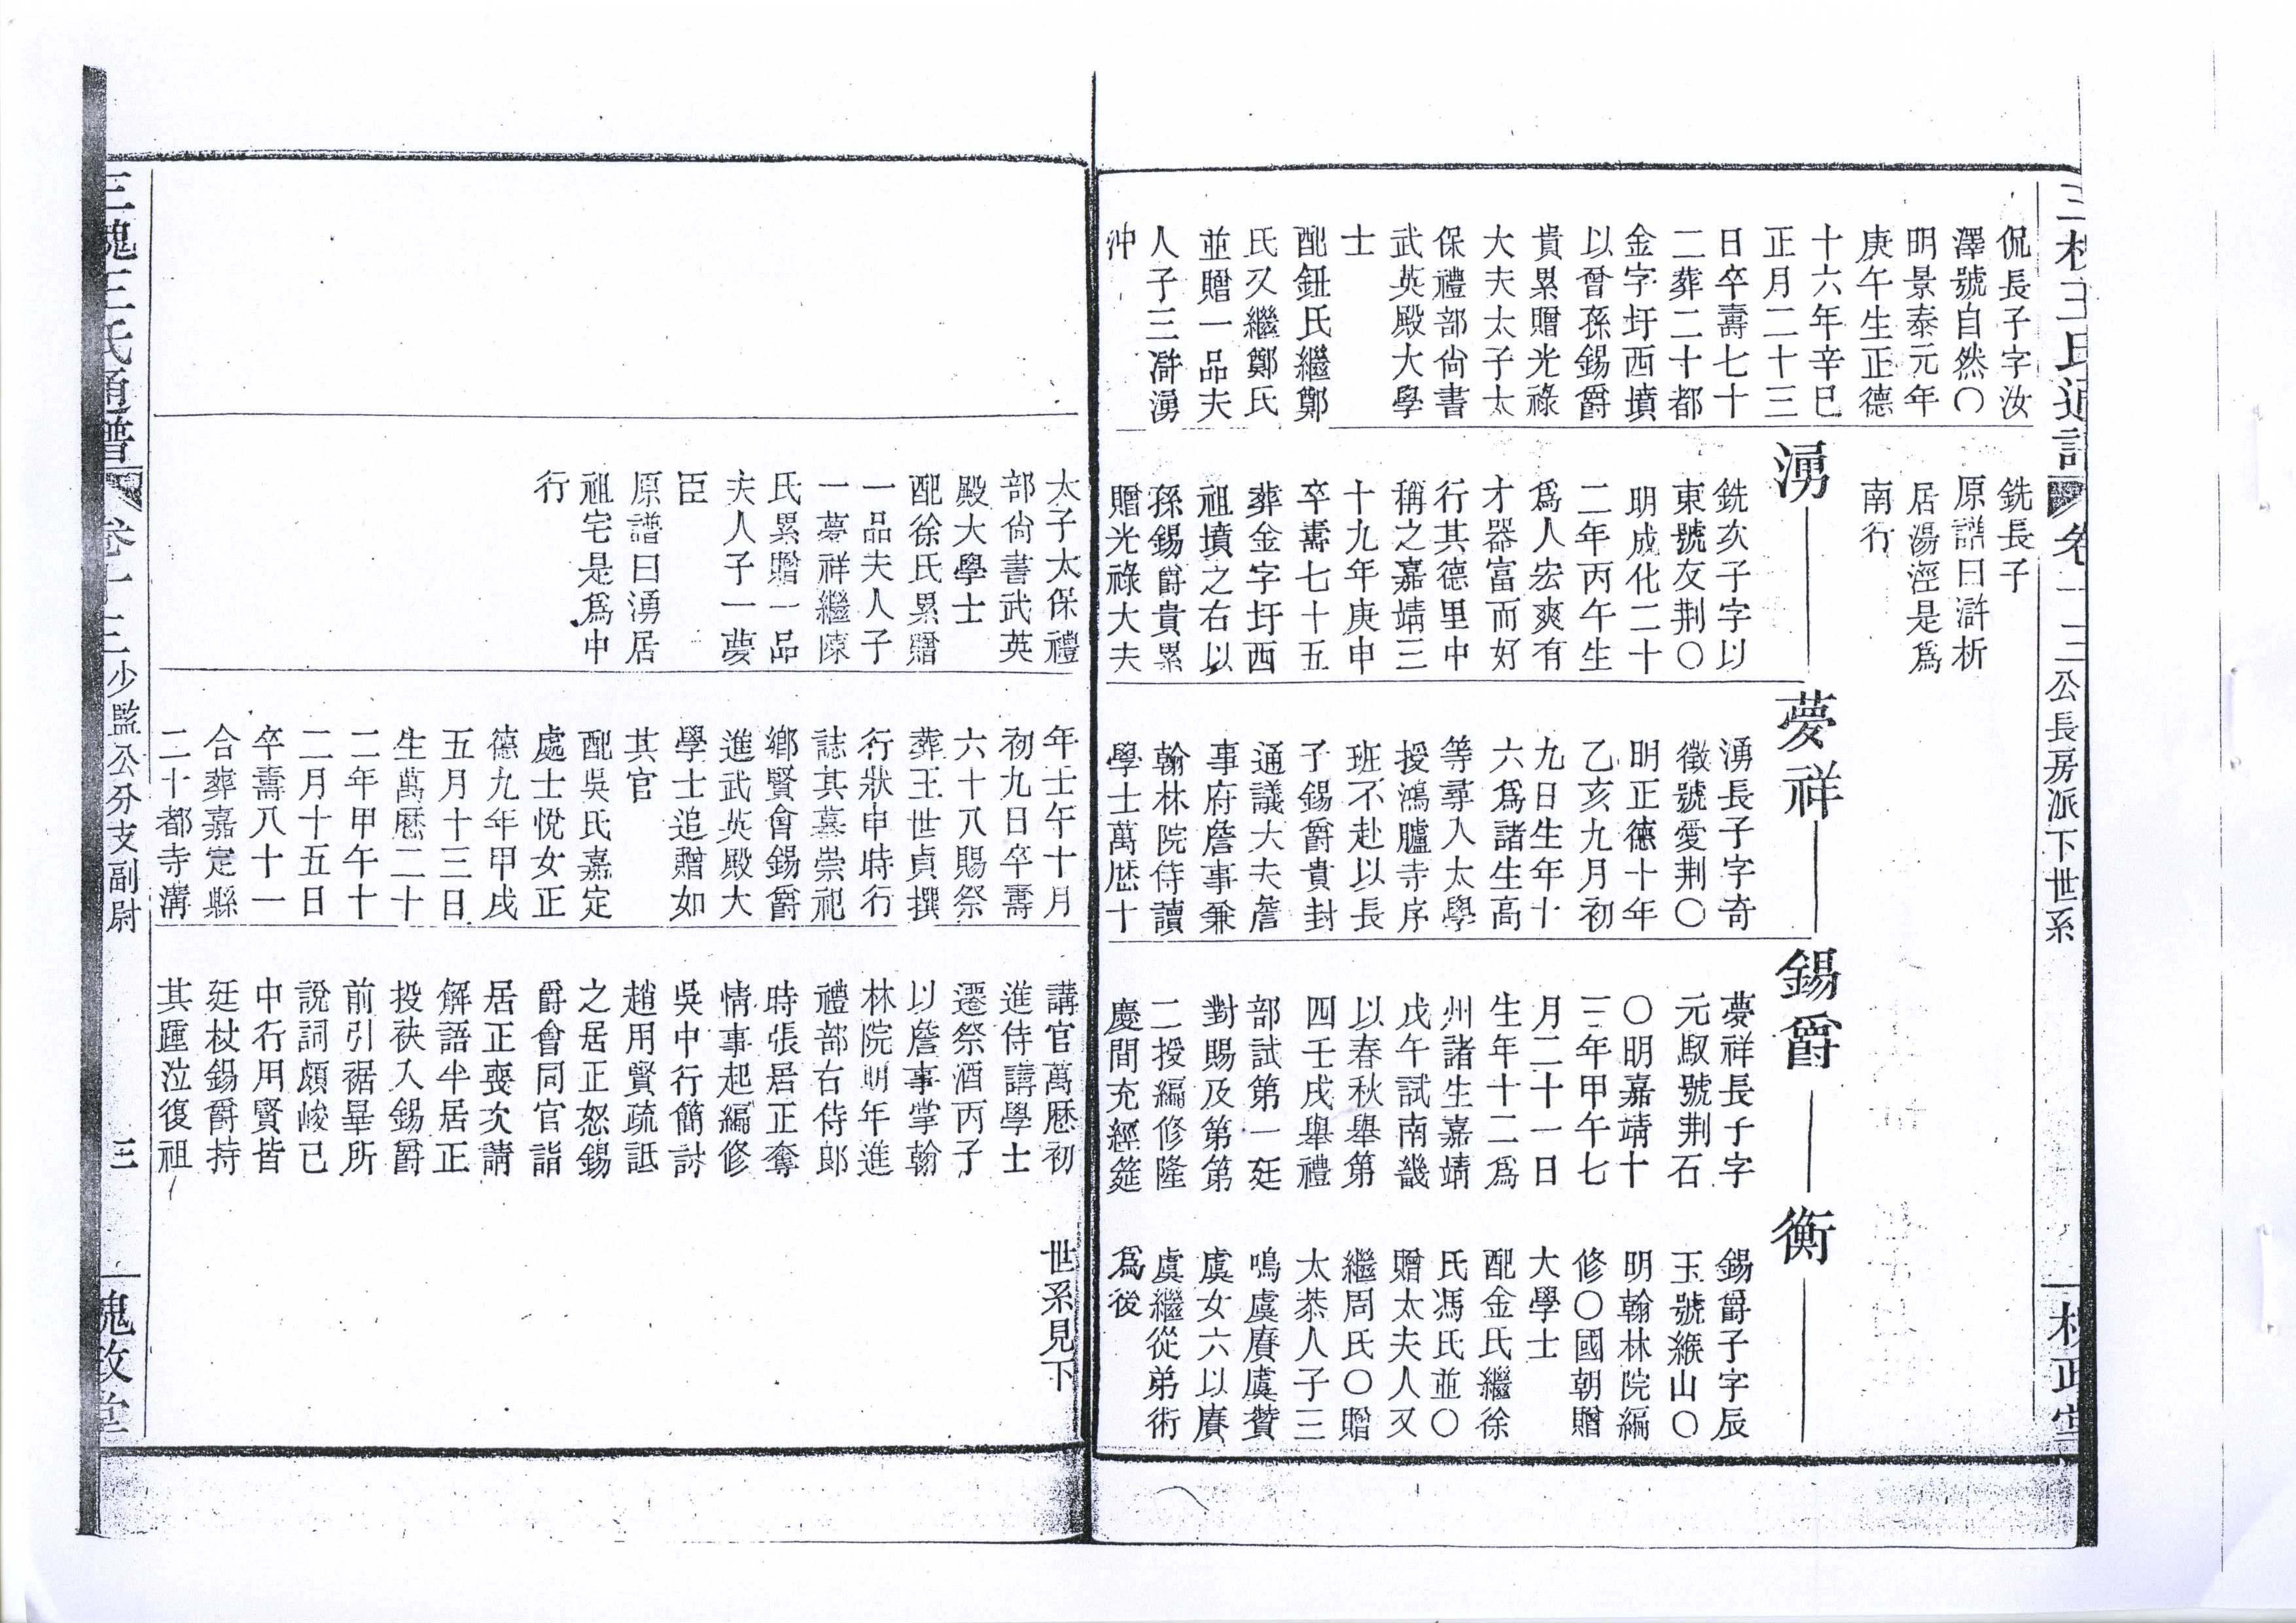 三槐王氏通譜
卷十三
公長房派下世系
槐政堂
侃長子字汝
澤號自然〇
明景泰元年
庚午生正德
十六年辛巳
正月二十三
日卒壽七十
二葬二十都
金字圩西墳
以曾孫錫爵
貴累贈光祿
大夫太子太
保禮部尙書
武英殿大學
士
配鈕氏繼鄭
氏又繼鄭氏
並贈一品夫
人子三澣湧
沖
銑長子
原譜曰澣析
居湯涇是爲
南行
湧
銑次子字以
東號友荆〇
明成化二十
二年丙午生
爲人宏爽有
才器富而好
行其德里中
稱之嘉靖三
十九年庚申
卒壽七十五
葬金字圩西
祖墳之右以
孫錫爵貴累
贈光祿大夫
夢祥
湧長子字奇
徵號愛荆〇
明正德十年
乙亥九月初
九日生年十
六爲諸生高
等尋入太學
授鴻臚寺序
班不赴以長
子錫爵貴封
通議大夫詹
事府詹事兼
翰林院侍讀
學士萬歴十
錫爵
夢祥長子字
元馭號荆石
〇明嘉靖十
三年甲午七
月二十一日
生年十二爲
州諸生嘉靖
戊午試南畿
以春秋舉第
四壬戌舉禮
部試第一廷
對賜及第第
二授編修隆
慶間充經筵
衡
錫爵子字辰
玉號緱山〇
明翰林院編
修〇國朝贈
大學士
配金氏繼徐
氏馮氏並〇
贈太夫人又
繼周氏〇贈
太恭人子三
鳴虞賡虞贊
虞女六以賡
虞繼從弟術
爲後
太子太保禮
部尙書武英
殿大學士
配徐氏累贈
一品夫人子
一夢祥繼陳
氏累贈一品
夫人子一夢
臣
原譜曰湧居
祖宅是爲中
行
年壬午十月
初九日卒壽
六十八賜祭
葬王世貞撰
行狀申時行
誌其墓崇祀
鄉賢會錫爵
進武英殿大
學士追贈如
其官
配吳氏嘉定
處士悅女正
德九年甲戌
五月十三日
生萬歴二十
二年甲午十
二月十五日
卒壽八十一
合葬嘉定縣
二十都寺溝
講官萬歴初
進侍講學士
遷祭酒丙子
以詹事掌翰
林院明年進
禮部右侍郎
時張居正奪
情事起編修
吳中行簡討
趙用賢疏詆
之居正怒錫
爵會同官詣
居正喪次請
解語半居正
投袂入錫爵
前引裾畢所
說詞頗峻已
中行用賢皆
廷杖錫爵持
其踵泣復祖
世系見下
三槐王氏通譜
卷十三
少監公分支副尉
三
槐政堂